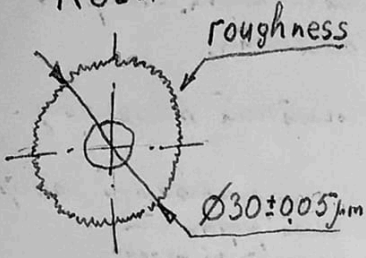 roughness
Ø30±0,05μm